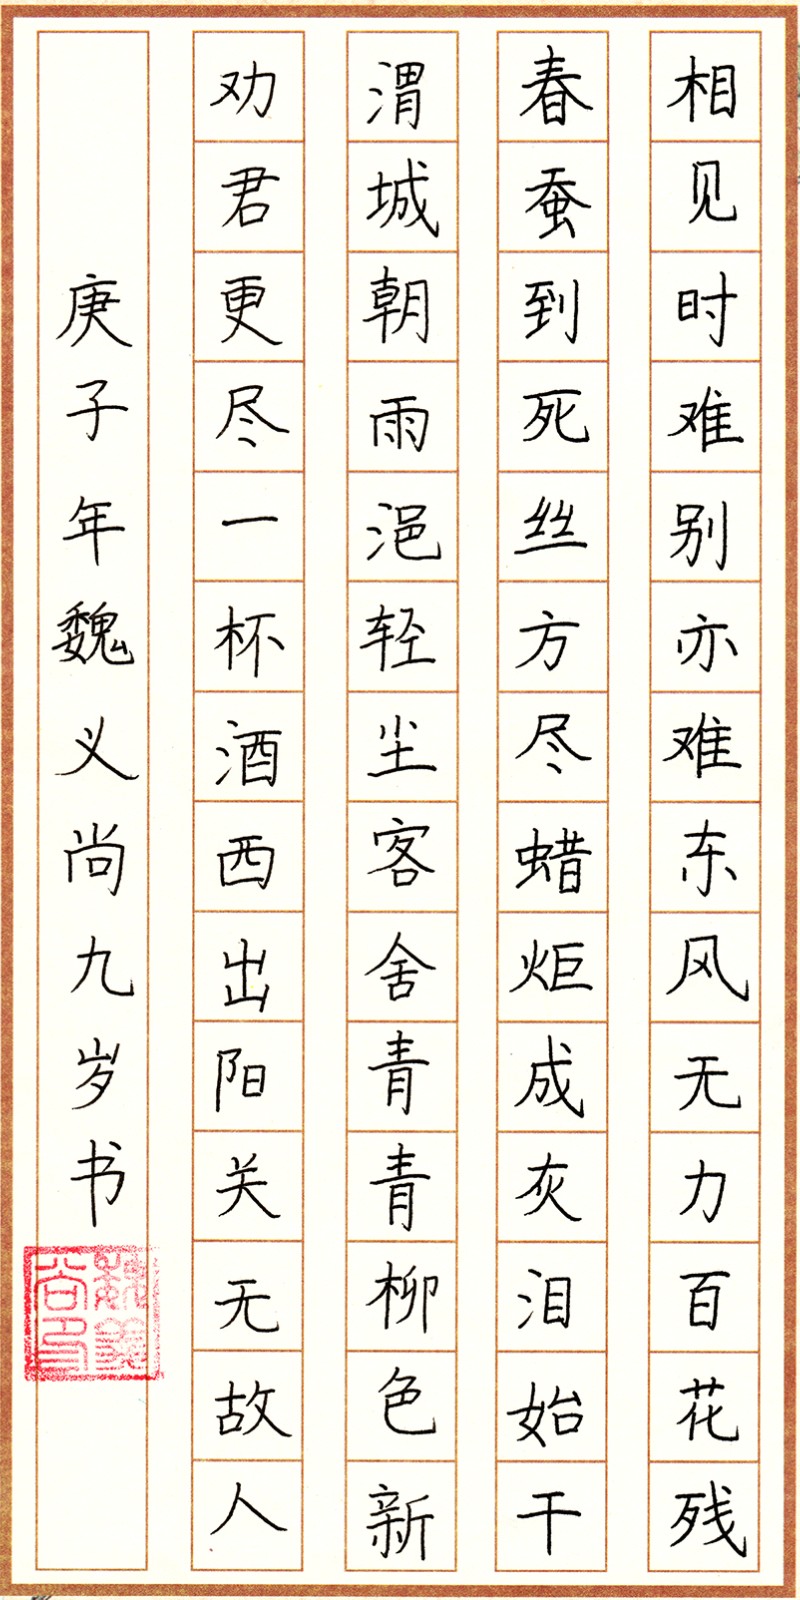 相见时难别亦难东风无力百花残
春蚕到死丝方尽蜡炬成灰泪始干
渭城朝雨浥轻尘客舍青青柳色新
劝君更尽一杯酒西出阳关无故人
庚子年魏义尚九岁书